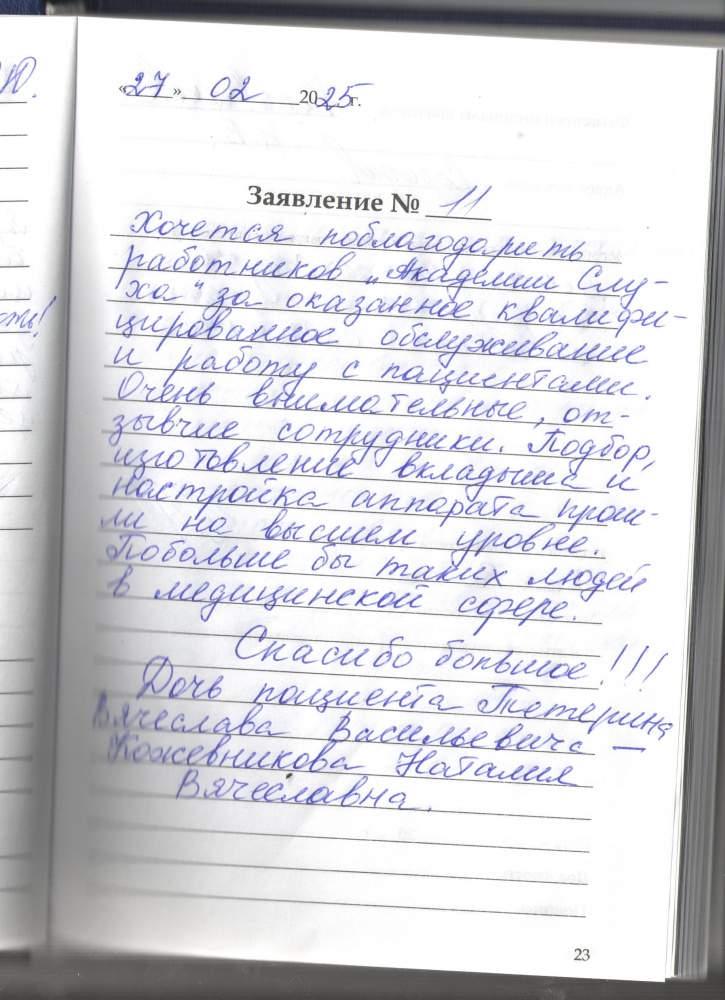 Ю.
«27» 02 2025г.
Заявление № 11
Хочется поблагодарить
работников „Академии Слу-
ха" за оказанное квалифи-
цированное обслуживание
и работу с пациентами.
Очень внимательные, от-
зывчие сотрудники. Подбор,
изготовление вкладыша и
настройка аппарата прош-
ли на высшем уровне.
Побольше бы таких людей
в медицинской сфере.
Спасибо большое!!!
Дочь пациента Тетерина
Вячеслава Васильевича —
Кожевникова Наталия
Вячеславна.
23